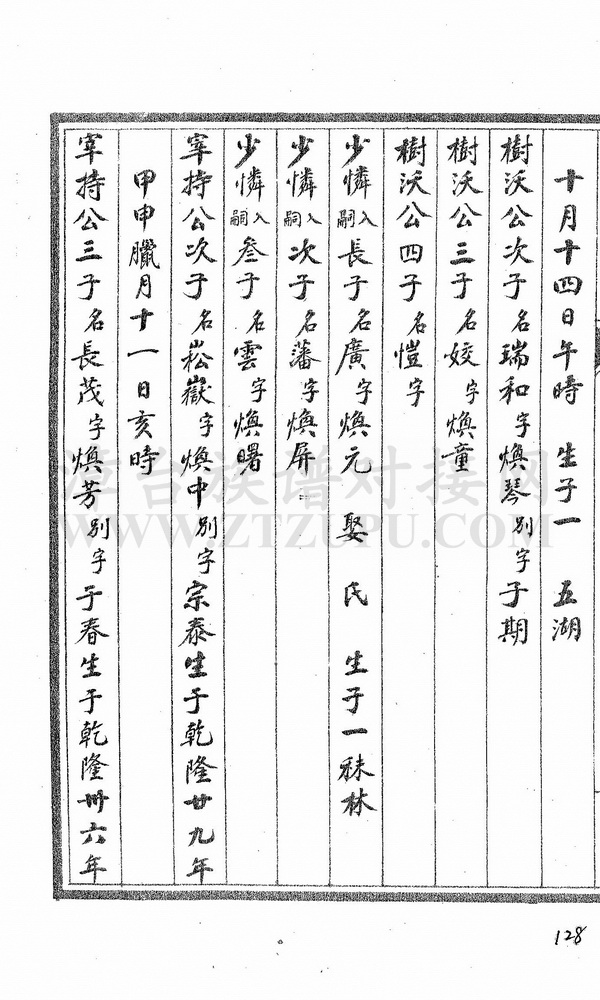 十月十四日午時 生子一 五湖
樹沃公次子名瑞和字煥琴別字子期
樹沃公三子名姣字煥童
樹沃公四子名愷字
少憐入嗣長子名廣字煥元 娶 氏 生子一秣林
少憐入嗣次子名藩字煥屏
少憐入嗣叁子名雲字煥曙
宰持公次子名崧嶽字煥中別字宗泰生于乾隆廿九年
甲申臘月十一日亥時
宰持公三子名長茂字煥芳別字于春生于乾隆卅六年
128
漳台族谱对接网
WWW.ZTZUPU.COM